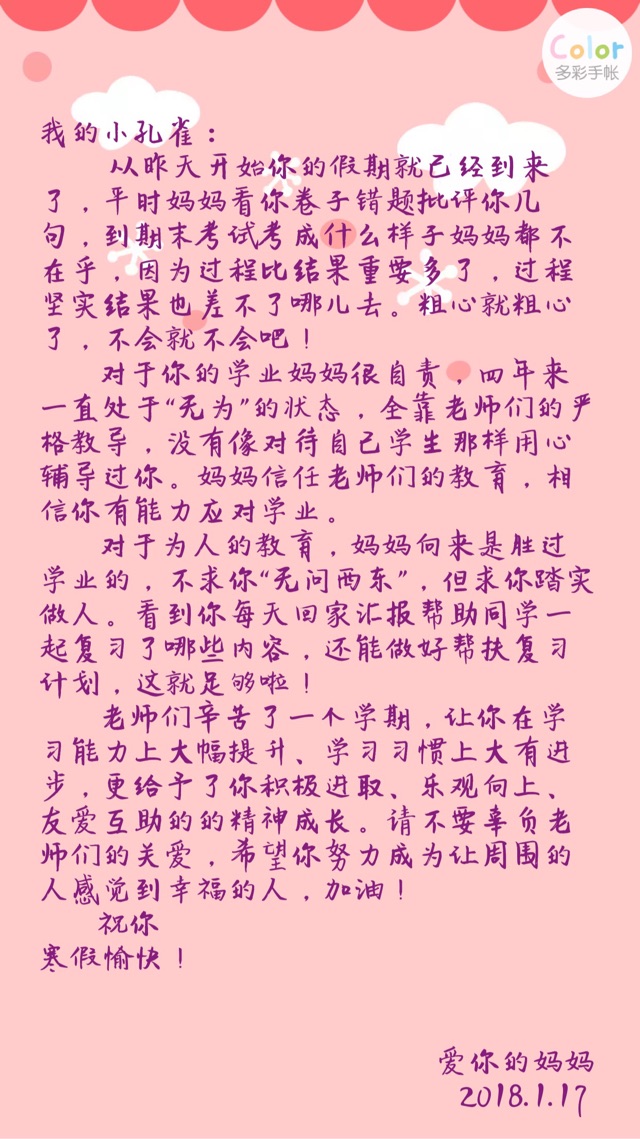 Color
多彩手帐
我的小孔雀：
从昨天开始你的假期就已经到来
了，平时妈妈看你卷子错题批评你几
句，到期末考试考成什么样子妈妈都不
在乎，因为过程比结果重要多了，过程
坚实结果也差不了哪儿去。粗心就粗心
了，不会就不会吧！
对于你的学业妈妈很自责，四年来
一直处于“无为”的状态，全靠老师们的严
格教导，没有像对待自己学生那样用心
辅导过你。妈妈信任老师们的教育，相
信你有能力应对学业。
对于为人的教育，妈妈向来是胜过
学业的，不求你“无问西东”，但求你踏实
做人。看到你每天回家汇报帮助同学一
起复习了哪些内容，还能做好帮扶复习
计划，这就足够啦！
老师们辛苦了一个学期，让你在学
习能力上大幅提升、学习习惯上大有进
步，更给予了你积极进取、乐观向上、
友爱互助的的精神成长。请不要辜负老
师们的关爱，希望你努力成为让周围的
人感觉到幸福的人，加油！
祝你
寒假愉快！
爱你的妈妈
2018.1.17